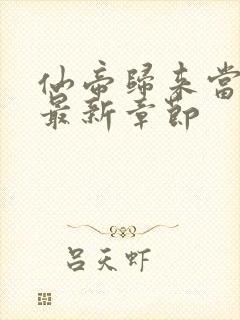 仙帝歸来當
最新章節
吕天虾